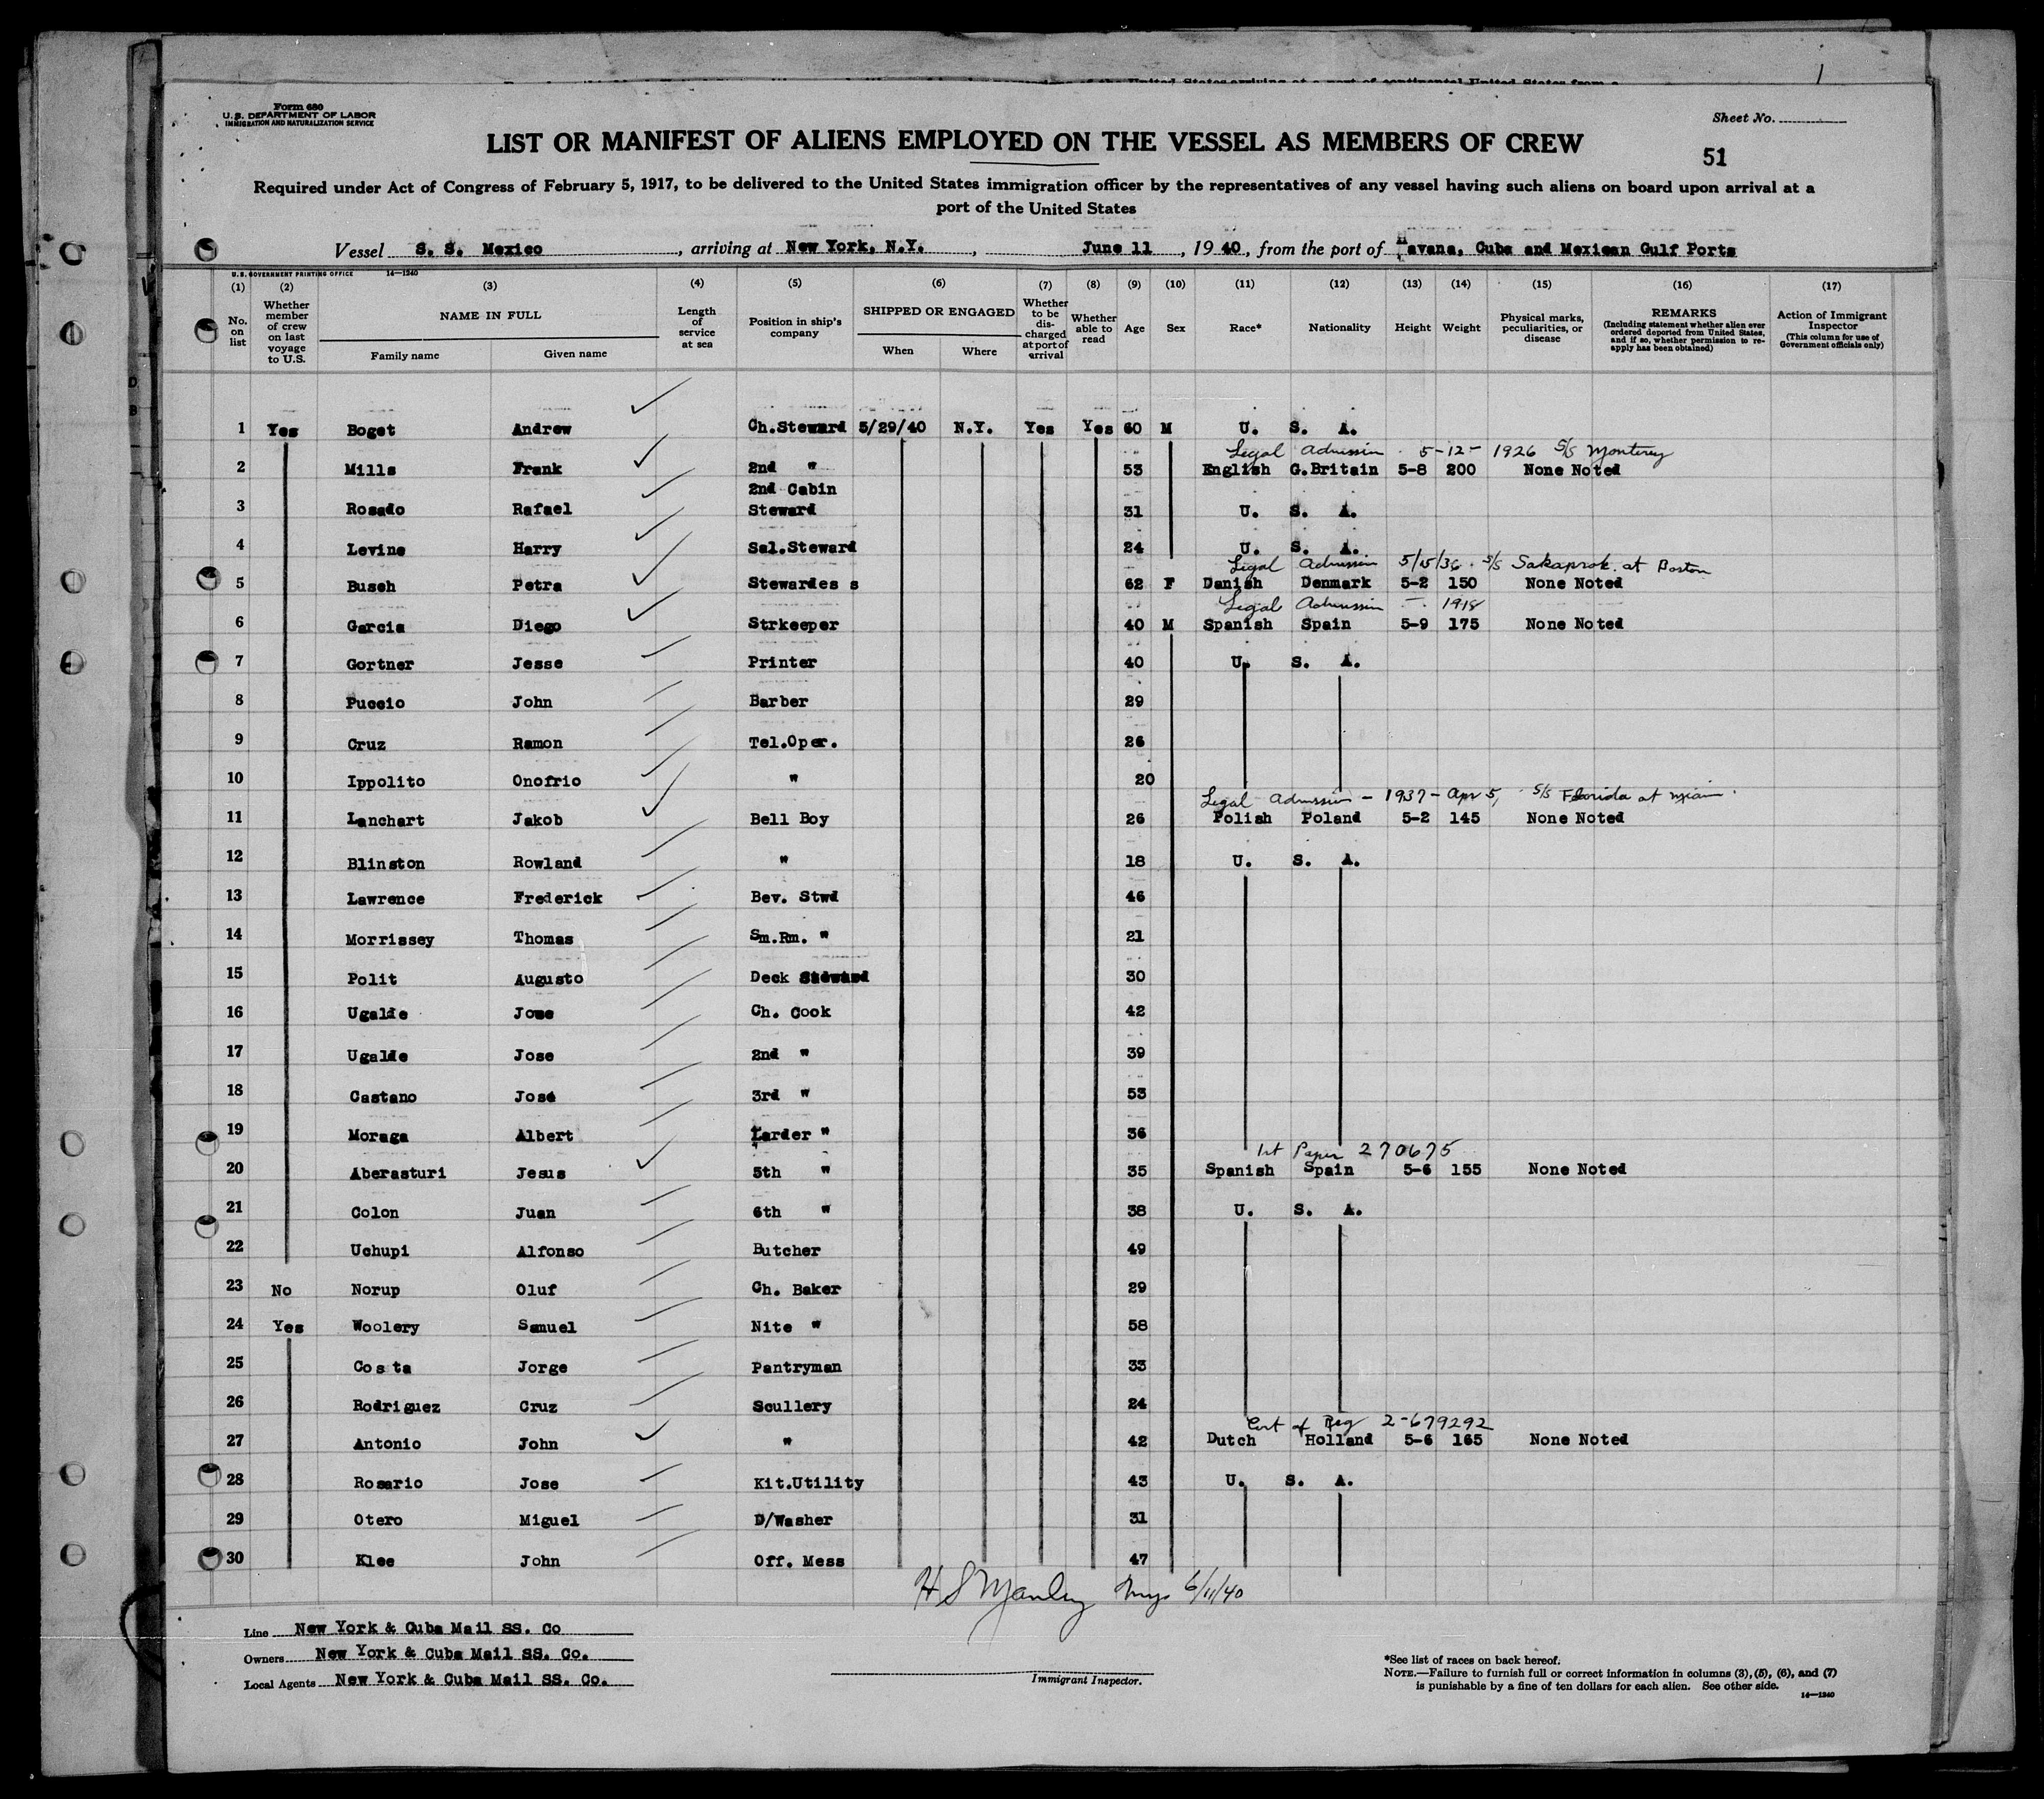 Form 680
U. S. DEPARTMENT OF LABOR
IMMIGRATION AND NATURALIZATION SERVICE
Sheet No.
LIST OR MANIFEST OF ALIENS EMPLOYED ON THE VESSEL AS MEMBERS OF CREW
51
Required under Act of Congress of February 5, 1917, to be delivered to the United States immigration officer by the representatives of any vessel having such aliens on board upon arrival at a
port of the United States
Vessel S. S. Mexico, arriving at New York, N.Y., June 11, 1940, from the port of Havana, Cuba and Mexican Gulf Ports
U. S. GOVERNMENT PRINTING OFFICE 14—1240
(1) No. on list
(2) Whether member of crew on last voyage to U.S.
(3) NAME IN FULL Family name Given name
(4) Length of service at sea
(5) Position in ship's company
(6) SHIPPED OR ENGAGED When Where
(7) Whether to be discharged at port of arrival
(8) Whether able to read
(9) Age
(10) Sex
(11) Race*
(12) Nationality
(13) Height
(14) Weight
(15) Physical marks, peculiarities, or disease
(16) REMARKS (Including statement whether alien ever ordered deported from United States, and if so, whether permission to reapply has been obtained)
(17) Action of Immigrant Inspector (This column for use of Government officials only)
1 Yes Boget Andrew Ch.Steward 5/29/40 N.Y. Yes Yes 60 M U. S. A.
Legal Admission 5-12- 1926 S/S Monterey
2 Mills Frank 2nd " 53 English G.Britain 5-8 200 None Noted
3 Rosado Rafael 2nd Cabin Steward 31 U. S. A.
4 Levine Harry Sal.Steward 24 U. S. A.
Legal Admission 5/15/36 S/S Sakaprok. at Boston
5 Busch Petra Stewardes s 62 F Danish Denmark 5-2 150 None Noted
Legal Admission - 1918
6 Garcia Diego Strkeeper 40 M Spanish Spain 5-9 175 None Noted
7 Gortner Jesse Printer 40 U. S. A.
8 Puccio John Barber 29
9 Cruz Ramon Tel.Oper. 26
10 Ippolito Onofrio " 20
Legal Admission - 1937 - Apr 5, S/S Florida at Miami
11 Lanchart Jakob Bell Boy 26 Polish Poland 5-2 145 None Noted
12 Blinston Rowland " 18 U. S. A.
13 Lawrence Frederick Bev. Stwd 46
14 Morrissey Thomas Sm.Rm. " 21
15 Polit Augusto Deck Steward 30
16 Ugalde Jose Ch. Cook 42
17 Ugalde Jose 2nd " 39
18 Castano José 3rd " 53
19 Moraga Albert Larder " 36
1st Paper 270675
20 Aberasturi Jesus 5th " 35 Spanish Spain 5-6 155 None Noted
21 Colon Juan 6th " 38 U. S. A.
22 Uchupi Alfonso Butcher 49
23 No Norup Oluf Ch. Baker 29
24 Yes Woolery Samuel Nite " 58
25 Costa Jorge Pantryman 33
26 Rodriguez Cruz Scullery 24
Cert of Reg 2-679292
27 Antonio John " 42 Dutch Holland 5-6 165 None Noted
28 Rosario Jose Kit.Utility 43 U. S. A.
29 Otero Miguel D/Washer 31
30 Klee John Off. Mess 47
H S Manley 6/11/40
Line New York & Cuba Mail SS. Co
Owners New York & Cuba Mail SS. Co.
Local Agents New York & Cuba Mail SS. Co.
Immigrant Inspector.
*See list of races on back hereof.
NOTE.—Failure to furnish full or correct information in columns (3), (5), (6), and (7)
is punishable by a fine of ten dollars for each alien. See other side.
14—1240